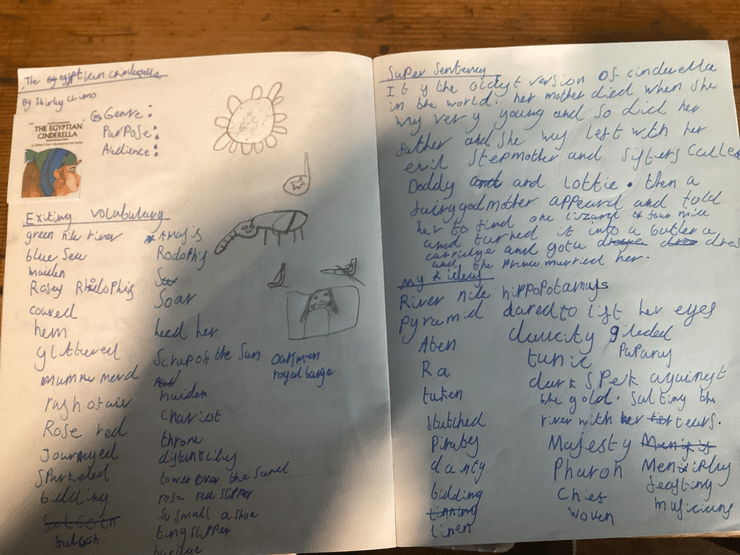 The egyptian cinderella
By Shirley Climo
THE EGYPTIAN
CINDERELLA
Genre:
Purpose:
Audience:
Exiting vocabulary
green nile river
blue Sea
maiden
Rosey Rhodophis
coaxed
hem
glittered
rush of air
Rose red
Journeyed
Sparkeled
bidding
Rodophis
Soar
heed her
Scrap of the Sun
maiden
Chariot
throne
tower over the Sand
rose red slipper
So small a shoe
tiny slipper
oarsmen
royal barge
Super Sentency
It y the oldest version of cinderella
in the world. her mother died when she
wuy very young and so did her
father and she wuy left with her
evil stepmother and sifters Called
Daddy and and Lottie. then a
fairy god mother appeard and told
her to find one lizard or four mice
and turned it into a butler a
carridge and got a dress
and the Prince married her.
my ideas
River nile hippopotamys
Pyramid dared to lift her eyes
Aten gileded
Ra tunic
dark speck againgt
the gold. Salting the
Stutched river with her tears.
Piraty Majesty
danty Pharoh Memphiy
bidding Chief feasting
linen woven musicians